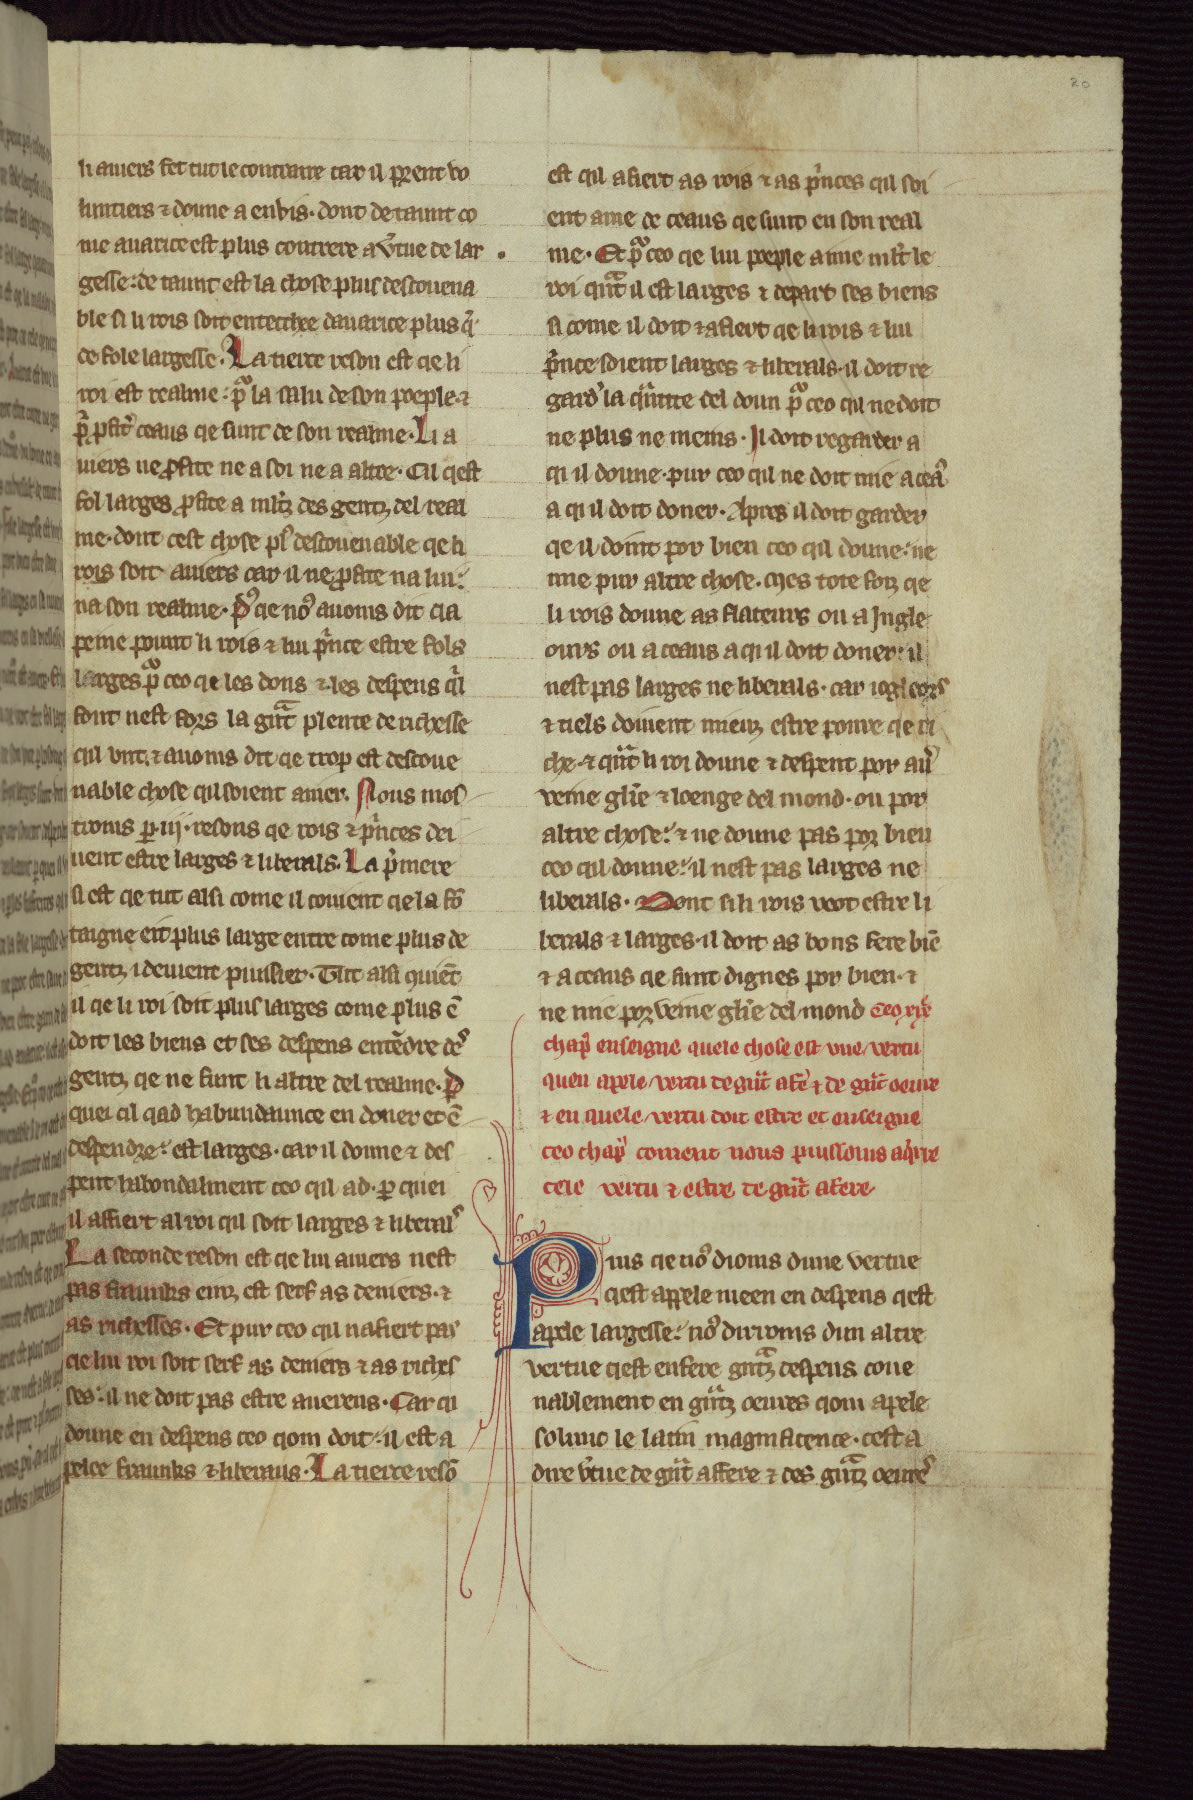 20
li auers fet tut le contraire car il prent vo
luntiers & donne a enbis. dont de taunt co
me auarice est plus contrere a v̾tue de lar
gesse: de taunt est la chose plus descouena
ble si li rois soit entecchee dauarice plus q̾
de fole largesse. La tierce reson est qe li
roi est realme: pᵃ la salu de son poeple &
p̾ pfit̾ ceaus qe sunt de son realme. Li a
uiers ne profite ne a soi ne a altre. Cil qest
fol larges profite a mlt̾z des gentz del real
me. dont cest chose pl᾿ descouenable qe li
rois soit auiers car il ne profite na lui:
na son realme. P᾿ qe no᾿ auoms dit cia
peine pount li rois & lui p̾nce estre fols
larges pᵃ ceo qe les dons & les despens q̾l
font nest fors la gᵃt plente de richesse
qil vnt. & auoms dit qe trop est descoue
nable chose qil soient auier. Nous mos
troms p iij. resons qe rois & p̾nces dei
uent estre larges & liberals. La p̾mere
si est qe tut alsi come il couient qe la fō
taigne eit plus large entre come plus de
gentz i deiuent puissier. Tut alsi quiēt
il qe li roi soit plus larges come plus ē
doit les biens et ses despens entēdre de᾿
gentz qe ne sunt li altre del realme. P
quei cil qad habundaunce en doner et ē
despendre: est larges. car il donne & des
pent habondalment ceo qil ad. p quei
il affiert al roi qil soit larges & liberal᾿
La seconde reson est qe lui auiers nest
pas fraunks einz est serf as deniers. &
as richesses. Et pur ceo qil nafiert pas
qe lui roi soit serf as deniers & as riches
ses: il ne doit pas estre auerous. Car qi
donne en despens ceo qom doit: il est a
pelee fraunks & liberaus. La tierce resō
est qil afiert as rois & as p̾nces qil soi
ent ame de ceaus qe sunt en son real
me. Et pᵃ ceo qe lui poeple aime mlt̾ le
roi qᵃt il est larges & depart ses biens
si come il doit & afiert qe li rois & lui
p̾nce soient larges & liberals. il doit re
gard᾿ la qᵃtite del doun pᵃ ceo qil ne doit
ne plus ne meins. Il doit regarder a
qi il donne. pur ceo qil ne doit mie a cea᾿
a qi il doit doner. Apres il doit garder
qe il doint por bien ceo qil donne: ne
mie pur altre chose. Mes tote foiz qe
li rois donne as flateurs ou a Jugle
ours ou a ceaus a qi il doit doner: il
nest pas larges ne liberals. car iogleors
& tiels doiuent mieuz estre poure qe ri
che. & qᵃt li roi donne & despent por au᾿
veine gl̄ie & loenge del mond. ou por
altre chose: & ne donne pas por bien
ceo qil donne: il nest pas larges ne
liberals. Dont si li rois veot estre li
berals & larges. il doit as bons fere biē
& a ceaus qe sunt dignes por bien. &
ne mie por veine gl̄ie del mond Ceo xix᾿
chap̾ enseigne quele chose est vne vertu
quen apele vertu de gᵃt afē & de gᵃt oeuure
& en quele vertu doit estre et enseigne
ceo chap̾ coment nous puissoms aq̾rre
cele vertu & estre de gᵃt afere
Puis qe no᾿ dioms dune vertue
qest appele meen en despens qest
apele largesse: no᾿ dirroms dun altre
vertue qest en fere gᵃtz despens coue
nablement en gᵃtz oeures qom apele
solunc le latin magnificence. cest a
dire v̾tue de gᵃt affere & des gᵃtz oeure᾿